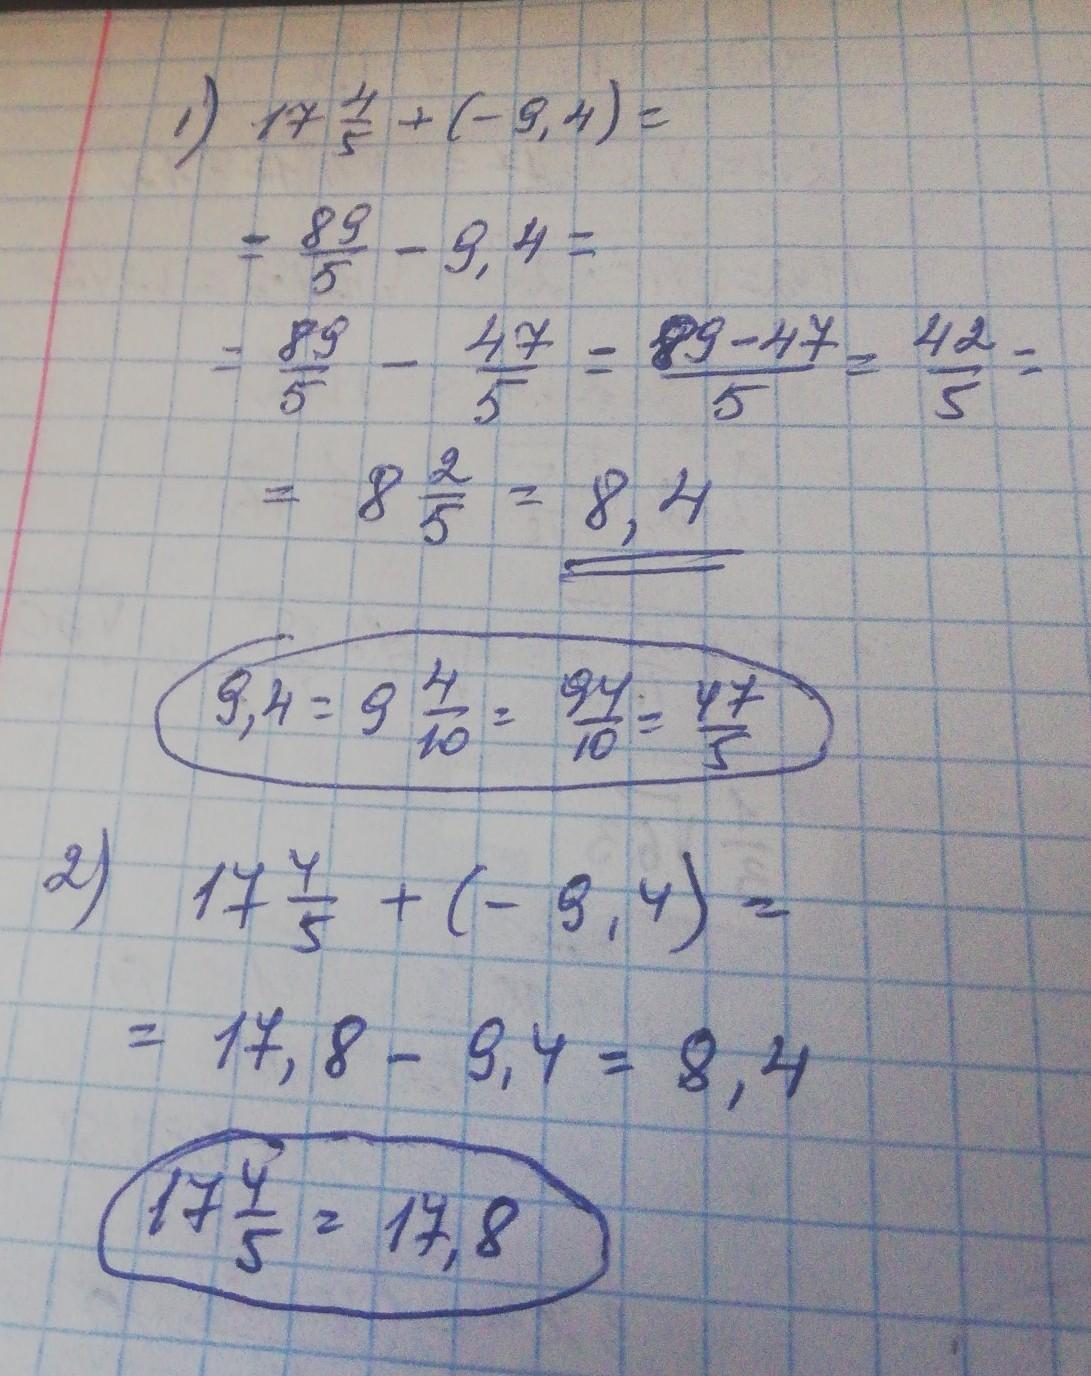 1) 17 4/5 + (-9,4) =
= 89/5 - 9,4 =
= 89/5 - 47/5 = 89-47/5 = 42/5 =
= 8 2/5 = 8,4
9,4 = 9 4/10 = 94/10 = 47/5
2) 17 4/5 + (- 9,4) =
= 17,8 - 9,4 = 8,4
17 4/5 = 17,8